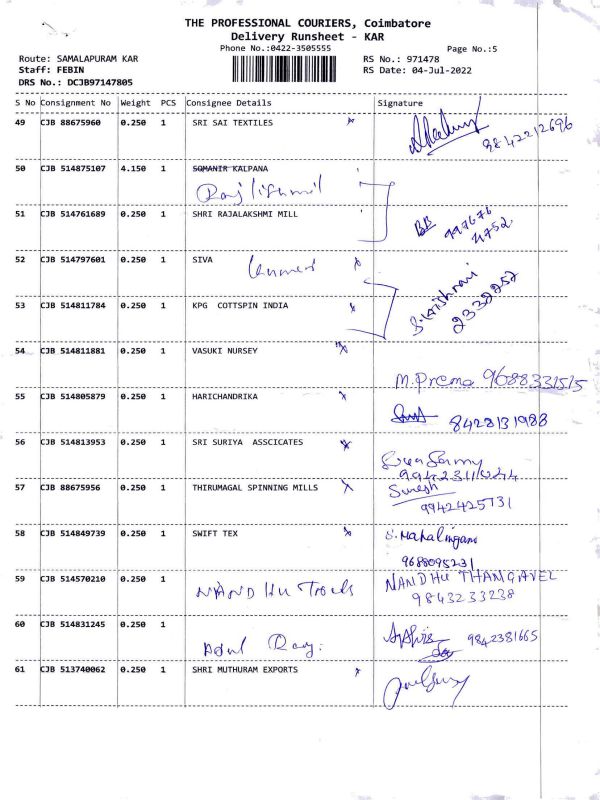 THE PROFESSIONAL COURIERS, Coimbatore
Delivery Runsheet - KAR
Phone No.:0422-3505555
Page No.:5
Route: SAMALAPURAM KAR
Staff: FEBIN
DRS No.: DCJB97147805
RS No.: 971478
RS Date: 04-Jul-2022
S No Consignment No Weight PCS Consignee Details Signature
49 CJB 88675960 0.250 1 SRI SAI TEXTILES
9842212696
50 CJB 514875107 4.150 1 SOMANIR KALPANA
51 CJB 514761689 0.250 1 SHRI RAJALAKSHMI MILL
BB 997676
4752
52 CJB 514797601 0.250 1 SIVA
53 CJB 514811784 0.250 1 KPG COTTSPIN INDIA
2332252
54 CJB 514811881 0.250 1 VASUKI NURSEY
M.Prema 9688331515
55 CJB 514805879 0.250 1 HARICHANDRIKA
8428131988
56 CJB 514813953 0.250 1 SRI SURIYA ASSCICATES
57 CJB 88675956 0.250 1 THIRUMAGAL SPINNING MILLS
Suresh
9942425731
58 CJB 514849739 0.250 1 SWIFT TEX
S. Mahalingam
9688095231
59 CJB 514570210 0.250 1 NANDHU
NANDHU THANGAVEL
9843233238
60 CJB 514831245 0.250 1
9842381665
61 CJB 513740062 0.250 1 SHRI MUTHURAM EXPORTS